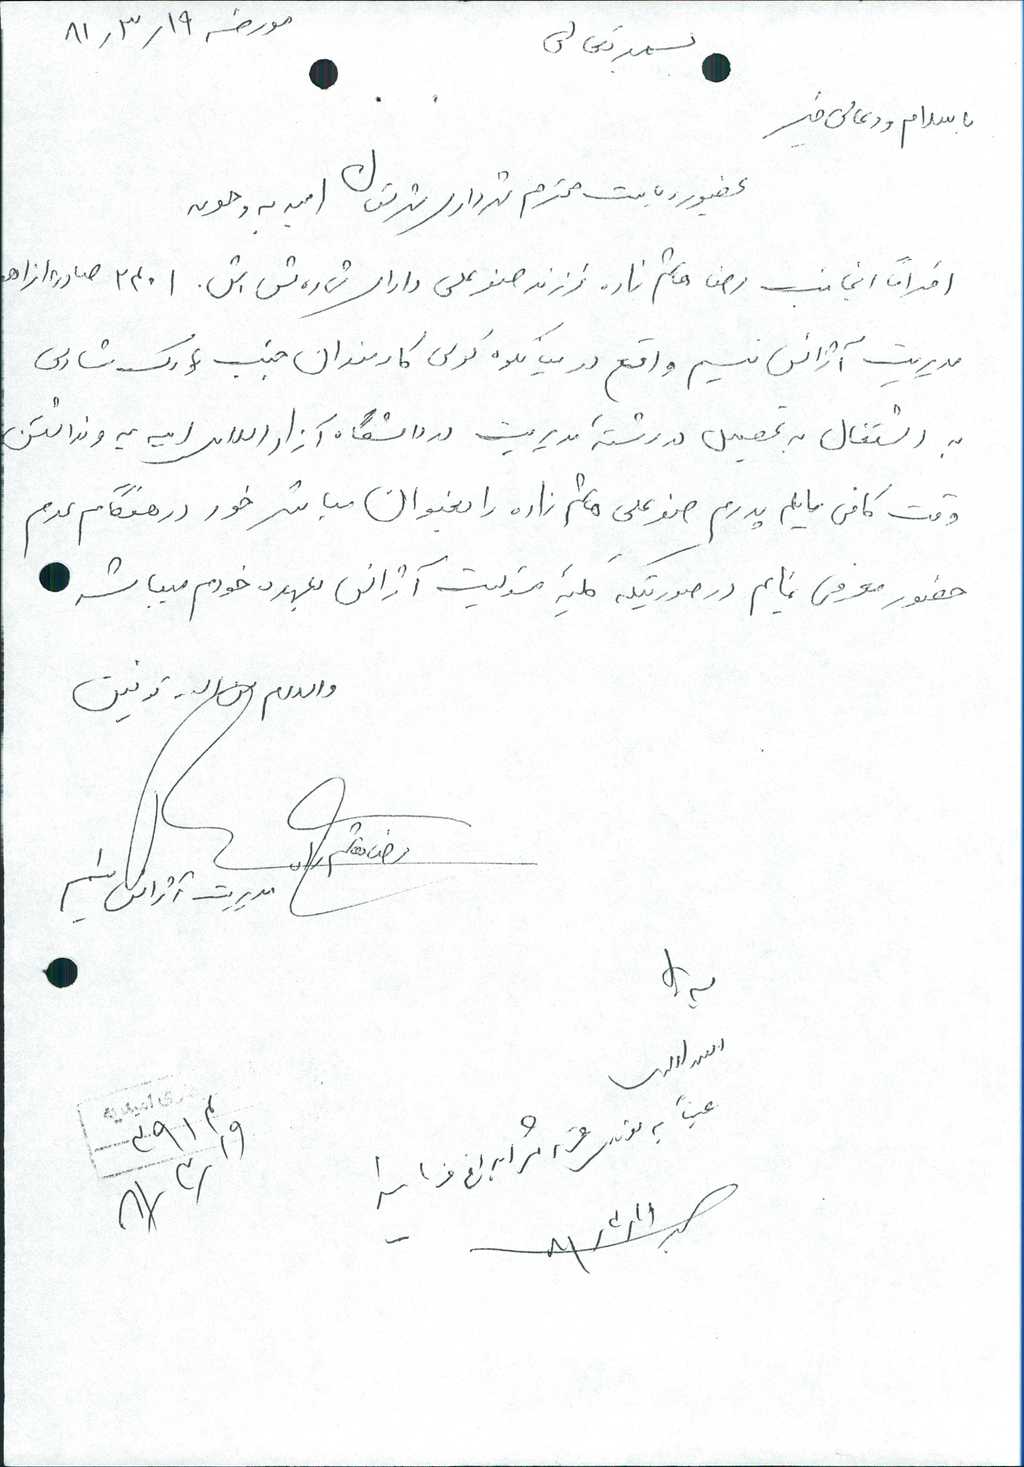 بسمه تعالی
مورخه ۸۱٫۳٫۱۹
با سلام و دعای خیر
حضور ریاست محترم شهرداری شهرستان امیدیه وجونه
احتراماً اینجانب رضا هاشم زاده فرزند صفرعلی دارای شماره ش ش ۲۲۰۱ صادره از اهواز
مدیریت آژانس نسیم واقع در میانکوه کوی کارمندان جنب پارک شادی
به اشتغال به تحصیل در رشته مدیریت در دانشگاه آزاد اسلامی امیدیه و نداشتن
وقت کافی مایلم پدرم صفرعلی هاشم زاده را بعنوان مباشر خود در هنگام عدم
حضور معرفی نمایم در صورتیکه کلیه مسئولیت آژانس بعهده خودم میباشد
والسلام من الله توفیق
رضا هاشم زاده
مدیریت آژانس نسیم
عیناً به
۸۱٫۳٫۱۹
امیدیه
۸۱٫۳٫۱۹